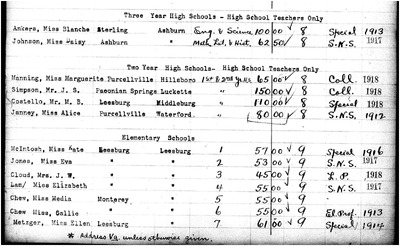 Three Year High Schools - High School Teachers Only
Ankers, Miss Blanche Sterling Ashburn Eng. & Science 100 00 ✓ 8 Special 1913
Johnson, Miss Daisy Ashburn " Math, Lat, & Hist. 62 50 ✓ 8 S.N.S. 1917
Two Year High Schools- High School Teachers Only
Manning, Miss Marguerite Purcellville Hillsboro 1st & 2nd yr. H.S. 65 00 ✓ 8 Coll. 1918
Simpson, Mr. J. S. Paeonian Springs Lucketts " 150 00 ✓ 8 Coll. 1918
Costello, Mr. M. B. Leesburg Middleburg " 110 00 ✓ 8 Special 1918
Janney, Miss Alice Purcellville Waterford. " 80 00 ✓ 8 S.N.S. 1912
Elementary Schools
McIntosh, Miss Kate Leesburg Leesburg 1 57 00 ✓ 9 Special 1916
Jones, Miss Eva " " 2 53 00 ✓ 9 S.N.S. 1917
Cloud, Mrs. J. W. " " 3 45 00 ✓ 9 L.P. 1918
Lam/ Miss Elizabeth " " 4 55 00 ✓ 9 S.N.S. 1917
Chew, Miss Media Monterey, " 5 55 00 ✓ 9
Chew Miss, Sallie " " 6 55 00 ✓ 9 El. Prof. 1913
Metzger, Miss Ellen Leesburg " 7 61 00 ✓ 9 Special 1914
* Address Va. unless otherwise given.